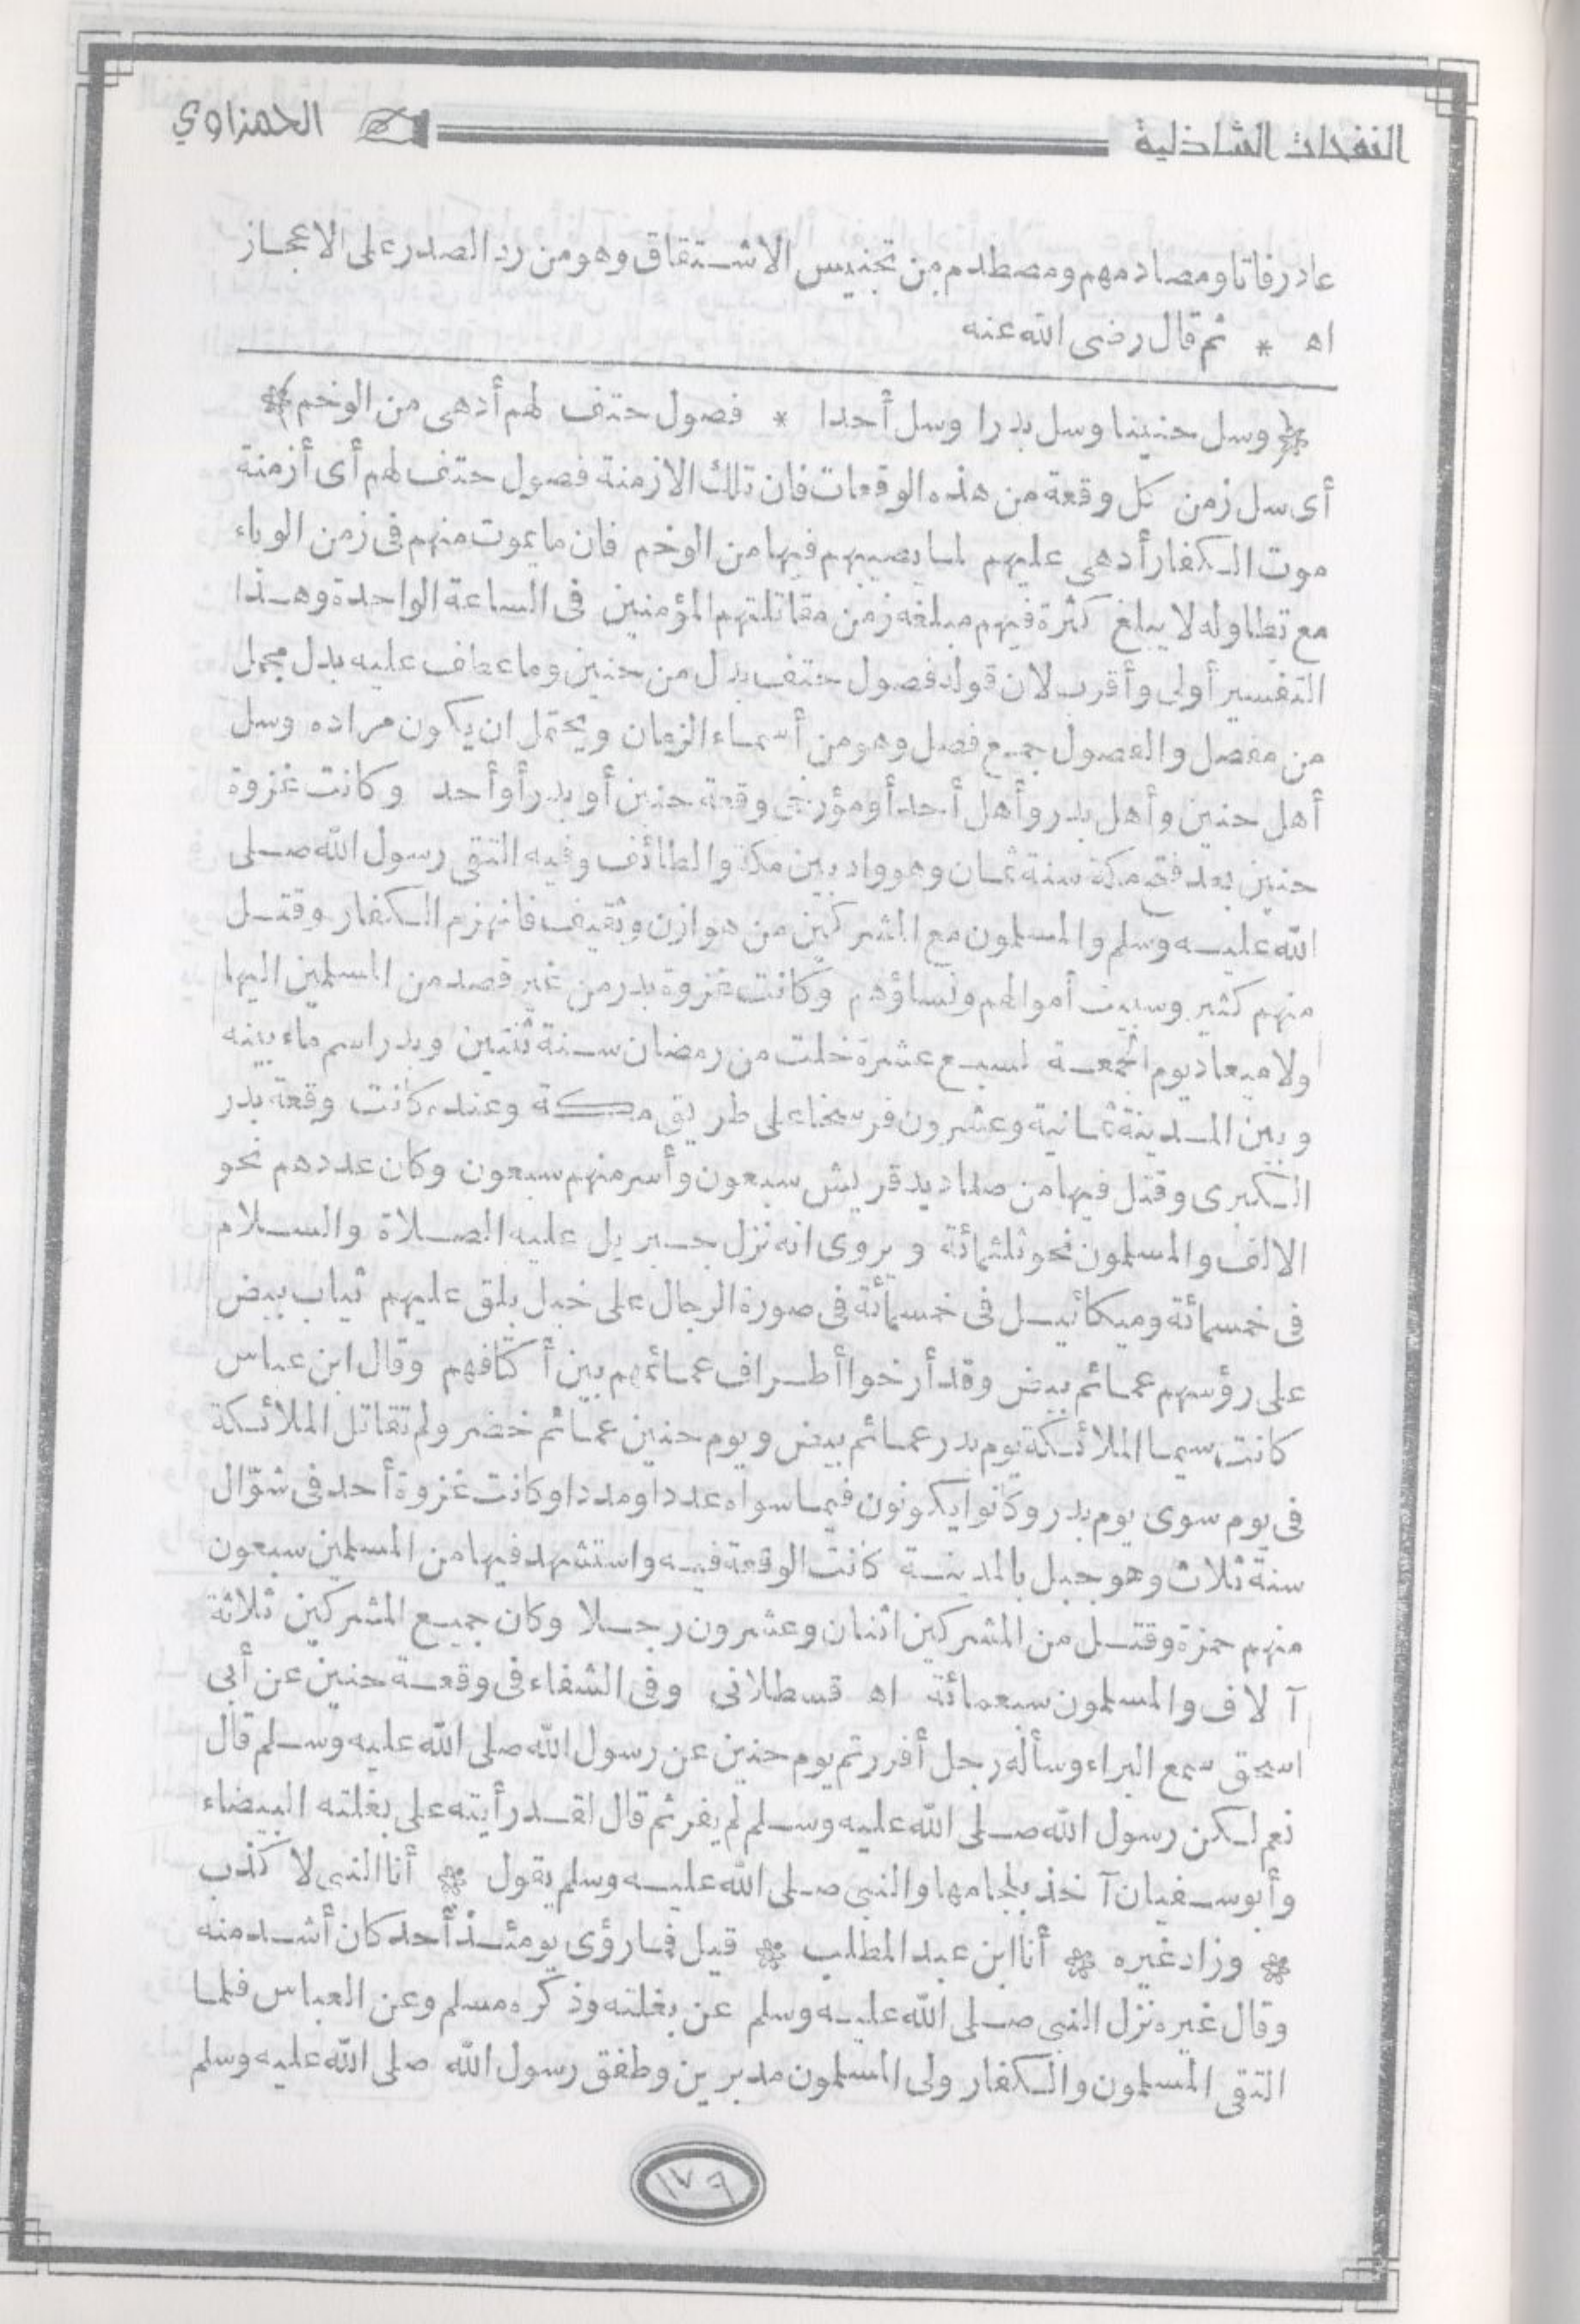 النفحات الشاذلية الحمزاوي
عاد رفاتا ومصادمهم ومصطدم من تجنيس الاشتقاق وهو من رد الصدر على الاعجاز
اه * ثم قال رضى الله عنه
وسل حنينا وسل بدرا وسل أحدا * فصول حتف لهم أدهى من الوخم
أى سل زمن كل وقعة من هذه الوقعات فان تلك الازمنة فصول حتف لهم أى أزمنة
موت الكفار أدهى عليهم لما يصيبهم فيها من الوخم فان ما يموت منهم فى زمن الوباء
مع تطاوله لا يبلغ كثرة فيهم مبلغه زمن مقاتلتهم المؤمنين فى الساعة الواحدة وهذا
التفسير أولى وأقرب لان قوله فصول حتف بدل من حنين وما عطف عليه بدل مجمل
من مفصل والفصول جمع فصل وهو من أسماء الزمان ويحتمل ان يكون مراده وسل
أهل حنين وأهل بدر وأهل أحد أو مؤرخى وقعة حنين أو بدر أو أحد وكانت غزوة
حنين بعد فتح مكة سنة ثمان وهو واد بين مكة والطائف وفيه التقى رسول الله صلى
الله عليه وسلم والمسلمون مع المشركين من هوازن وثقيف فانهزم الكفار وقتل
منهم كثير وسبيت أموالهم ونساؤهم وكانت غزوة بدر من غير قصد من المسلمين اليها
ولا ميعاد يوم الجمعة لسبع عشرة خلت من رمضان سنة ثنتين وبدر اسم ماء بينه
وبين المدينة ثمانية وعشرون فرسخا على طريق مكة وعنده كانت وقعة بدر
الكبرى وقتل فيها من صناديد قريش سبعون وأسر منهم سبعون وكان عددهم نحو
الالف والمسلمون نحو ثلثمائة ويروى انه نزل جبريل عليه الصلاة والسلام
فى خمسمائة وميكائيل فى خمسمائة فى صورة الرجال على خيل بلق عليهم ثياب بيض
على رؤسهم عمائم بيض وقد أرخوا أطراف عمائمهم بين أكتافهم وقال ابن عباس
كانت سيما الملائكة يوم بدر عمائم بيض ويوم حنين عمائم خضر ولم تقاتل الملائكة
فى يوم سوى يوم بدر وكانوا يكونون فيما سواه عددا ومددا وكانت غزوة أحد فى شوّال
سنة ثلاث وهو جبل بالمدينة كانت الوقعة فيه واستشهد فيها من المسلمين سبعون
منهم حمزة وقتل من المشركين اثنان وعشرون رجلا وكان جميع المشركين ثلاثة
آلاف والمسلمون سبعمائة اه قسطلانى وفى الشفاء فى وقعة حنين عن أبى
اسحق سمع البراء وسأله رجل أفررتم يوم حنين عن رسول الله صلى الله عليه وسلم قال
نعم لكن رسول الله صلى الله عليه وسلم لم يفر ثم قال لقد رأيته على بغلته البيضاء
وأبو سفيان آخذ بلجامها والنبى صلى الله عليه وسلم يقول * أنا النبى لا كذب
* وزاد غيره * أنا ابن عبد المطلب * قيل فما رؤى يومئذ أحد كان أشد منه
وقال غيره نزل النبى صلى الله عليه وسلم عن بغلته وذكره مسلم وعن العباس فلما
التقى المسلمون والكفار ولى المسلمون مدبرين وطفق رسول الله صلى الله عليه وسلم
١٧٩